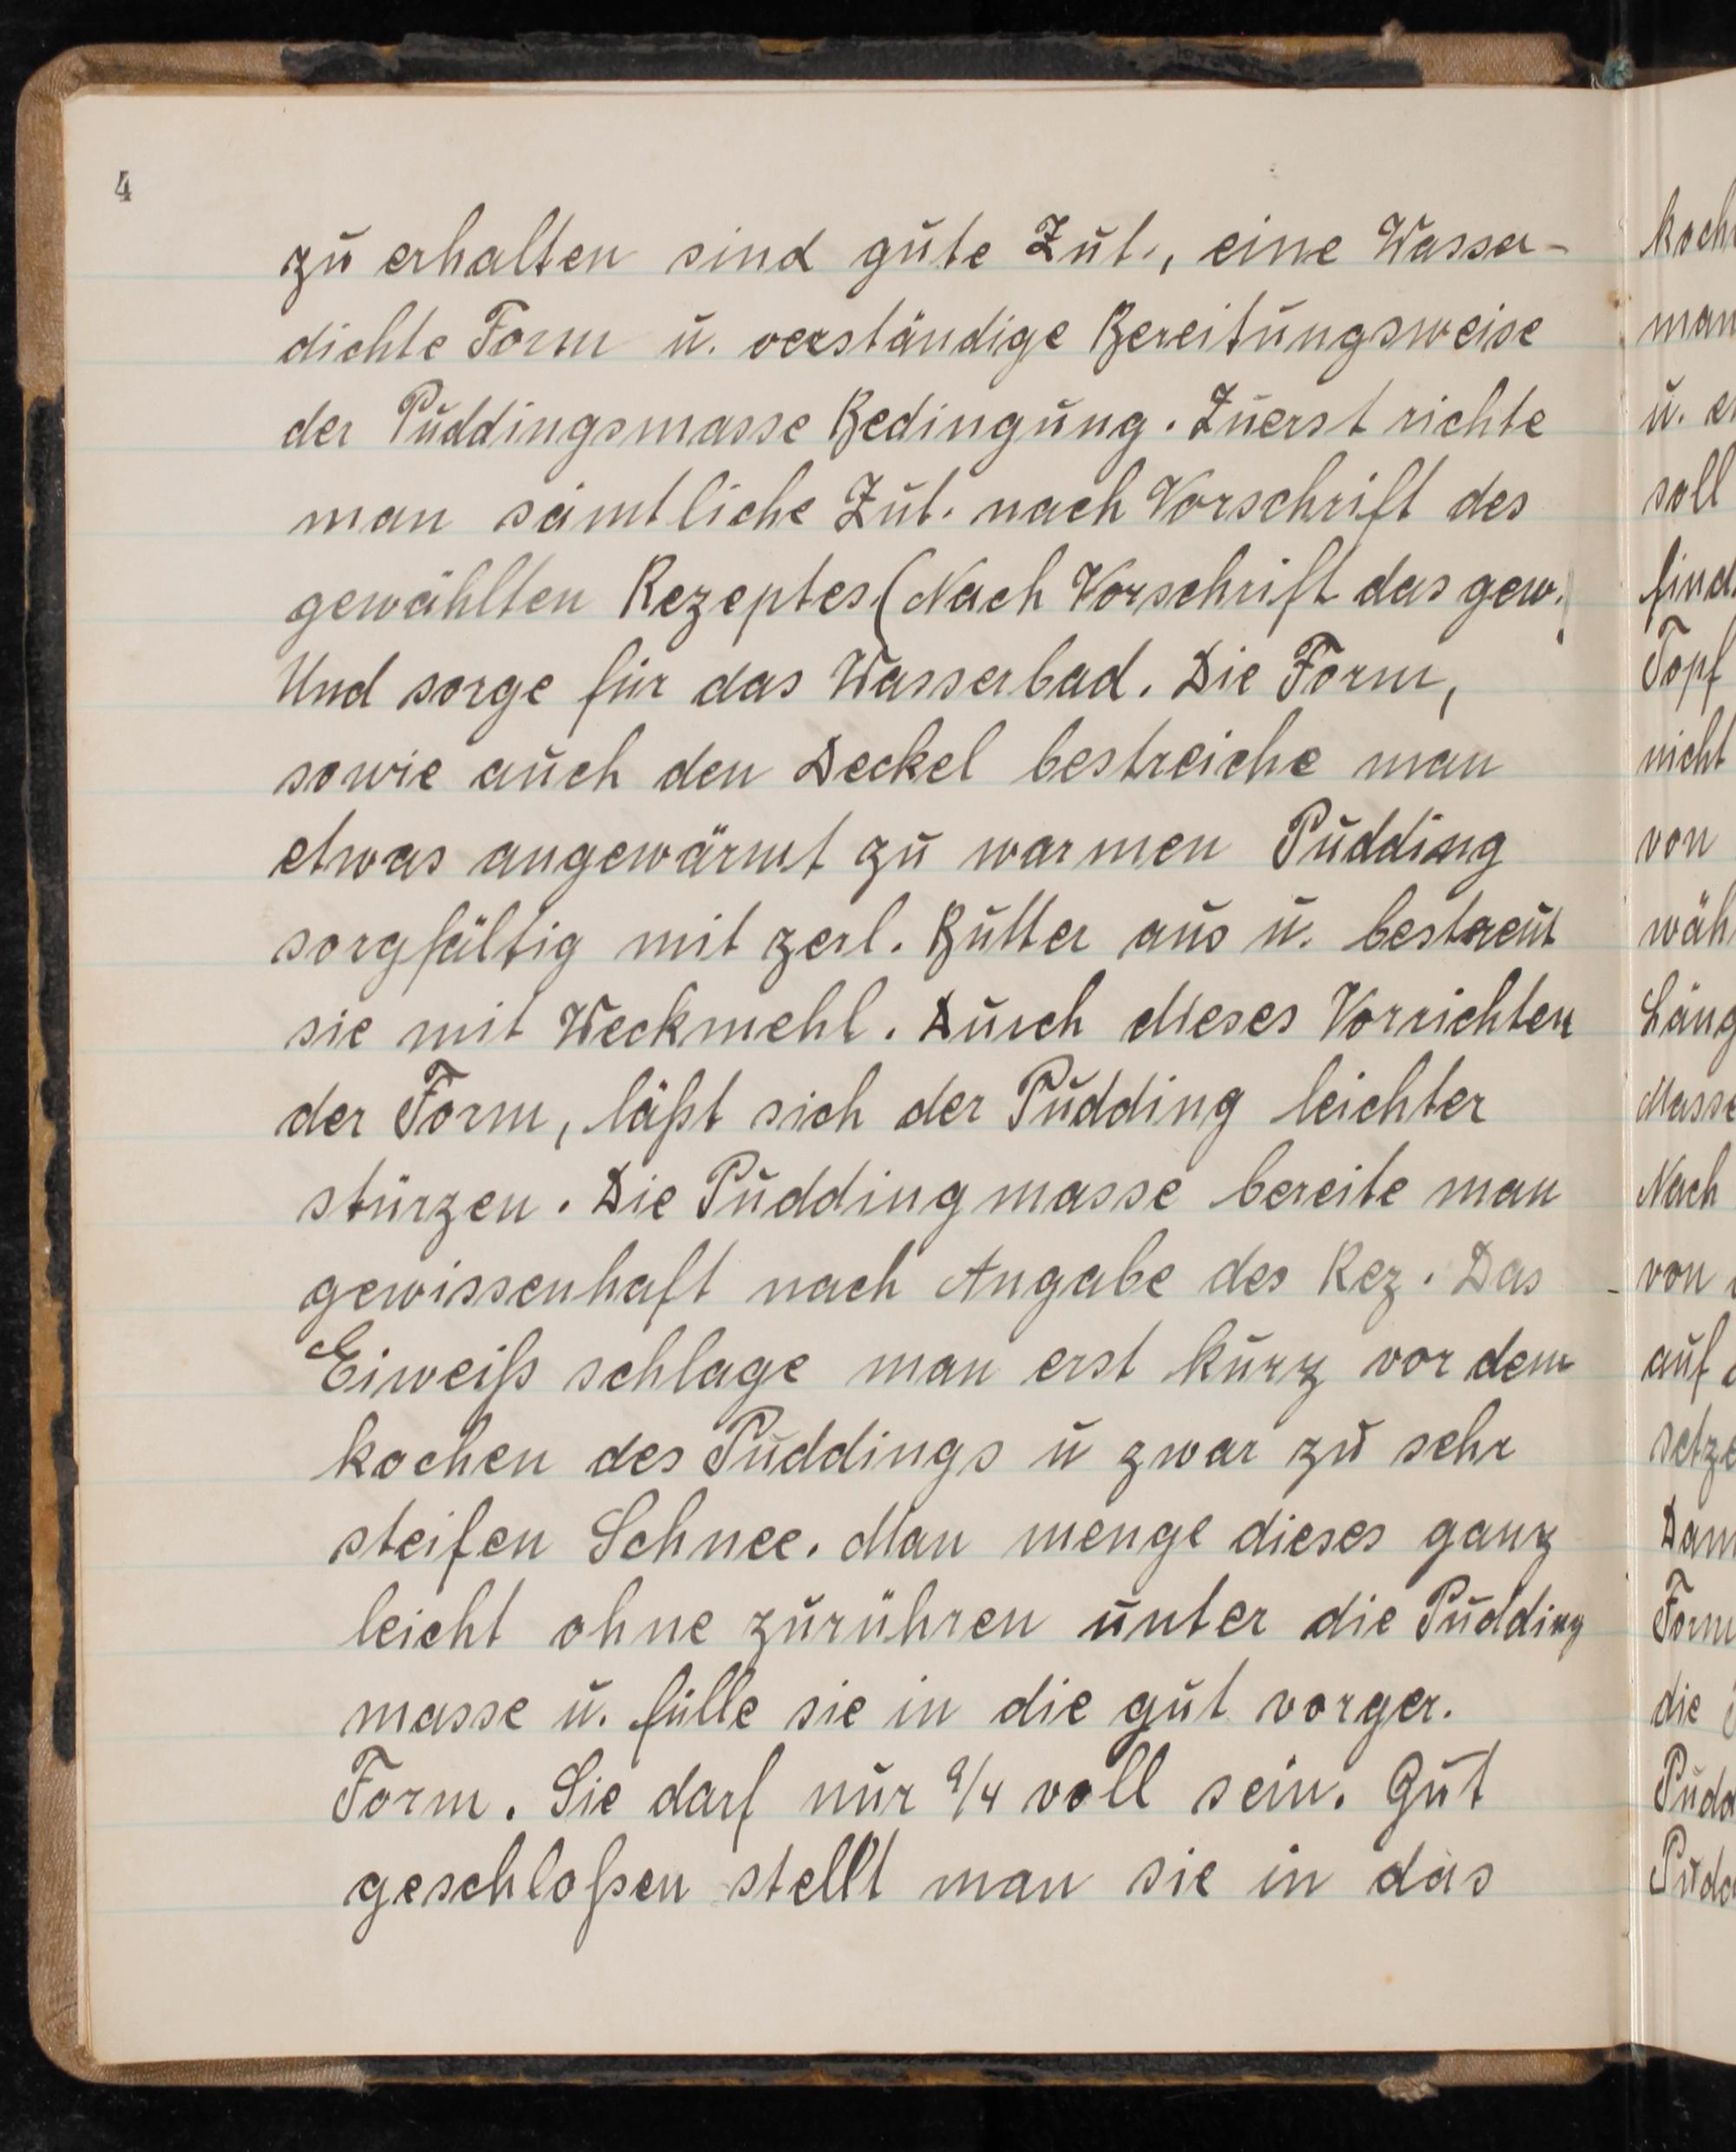 4
zu erhalten sind gute Zut., eine Wasser-
dichte Form u. verständige Bereitungsweise
der Puddingsmasse Bedingung. Zuerst richte
man sämtliche Zut. nach Vorschrift des
gewählten Rezeptes. (Nach Vorschrift das gew.)
Und sorge für das Wasserbad. Die Form,
sowie auch den Deckel bestreiche man
etwas angewärmt zu warmen Pudding
sorgfältig mit zerl. Butter aus u. bestreut
sie mit Weckmehl. Durch dieses Vorrichten
der Form, läßt sich der Pudding leichter
stürzen. Die Puddingmasse bereite man
gewissenhaft nach Angabe des Rez. Das
Eiweiß schlage man erst kurz vor dem
kochen des Puddings u zwar zu sehr
steifen Schnee. Man menge dieses ganz
leicht ohne zurühren unter die Pudding
masse u. fülle sie in die gut vorger.
Form. Sie darf nur voll sein. Gut
geschloßen stellt man sie in das
koch
man
u.
soll
find
Topf
nicht
von
wäh
Läng
Masse
Nach
von
auf
setze
Dam
Form
die
Pudd
Pudd